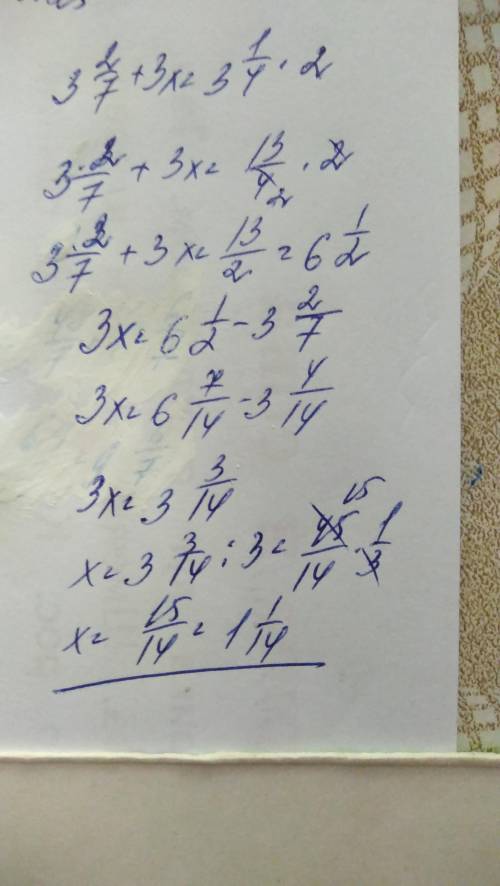 3 2/7 + 3x = 3 1/4 · 2
3 2/7 + 3x = 13/4 2 · 2
3 2/7 + 3x = 13/2 = 6 1/2
3x = 6 1/2 - 3 2/7
3x = 6 7/14 - 3 4/14
3x = 3 3/14
x = 3 3/14 : 3 = 45/14 15 · 1/3
x = 15/14 = 1 1/14